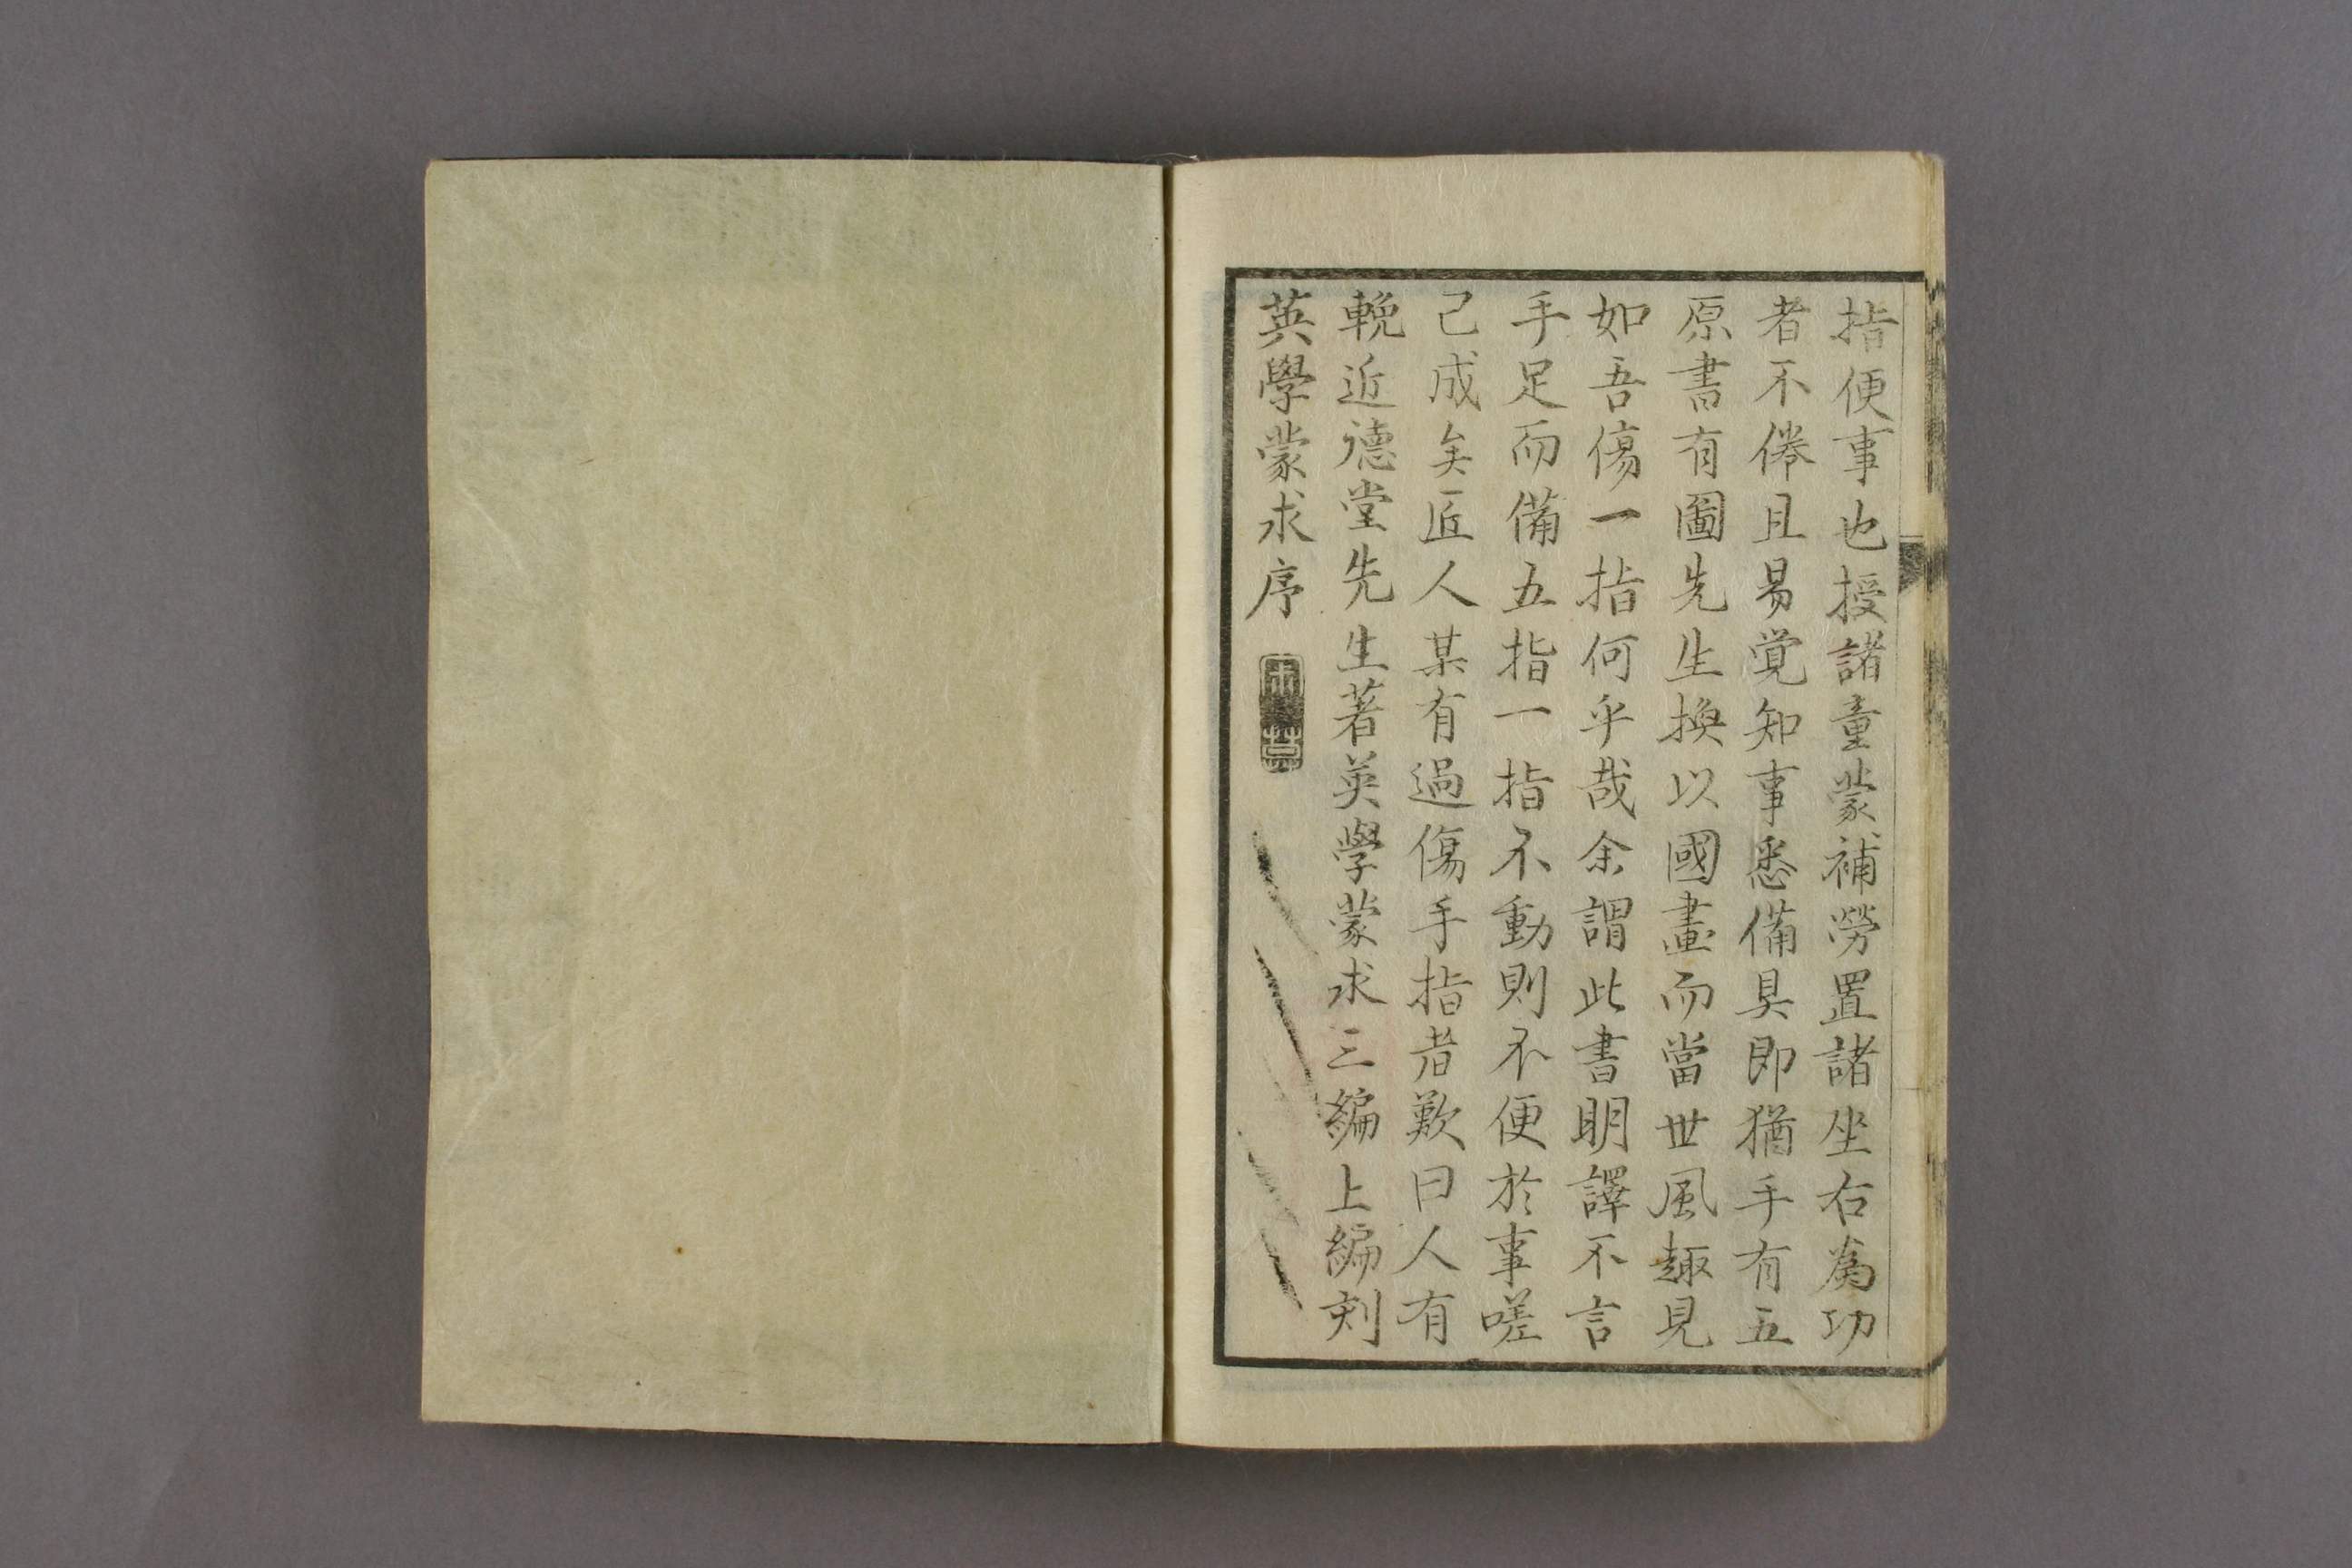 英學蒙求序
輓近德堂先生著英學蒙求三編上編刻
己成矣匠人某有過傷手指者歎曰人有
手足而備五指一指不動則不便於事嗟
如吾傷一指何乎哉余謂此書明譯不言
原書有圖先生換以國畫而當世風趣見
者不倦且易覚知事悉備具即猶手有五
指便事也授諸童蒙補勞置諸坐右為功